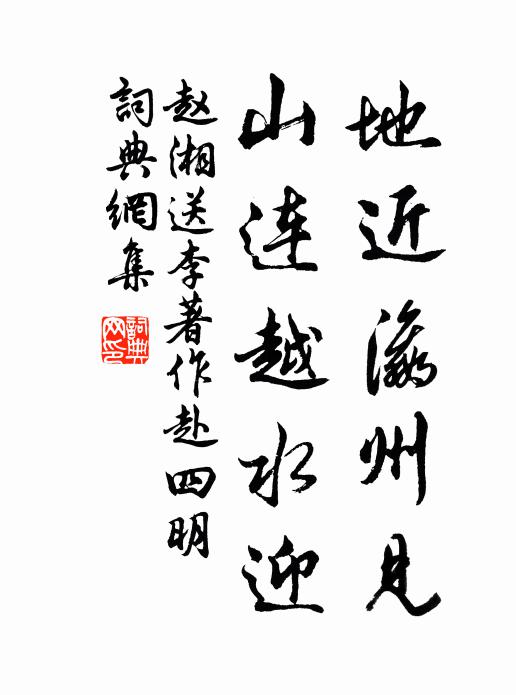 地近瀛州見
山連越水迎
赵湘送李著作赴四明
詞典網集
詞典网印